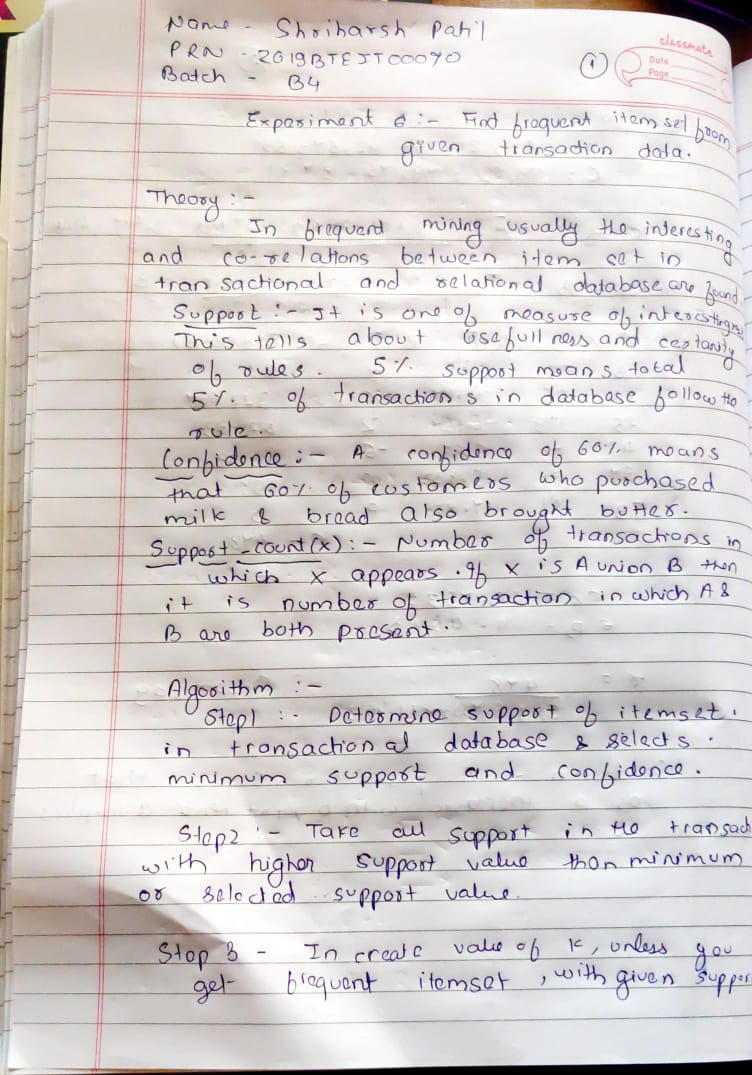 Name - Shriharsh Patil
PRN - 2019BTEIT00070
Batch - B4
1
classmate
Date
Page
Experiment 6 :- Find frequent item set from
given transaction data.
Theory :-
In frequent mining usually the interesting
and co-relations between item set in
transactional and relational database are found.
Support :- It is one of measure of interestingness
This tells about usefullness and certainity
of rules. 5% support means total
5% of transactions in database follow the
rule.
Confidence :- A confidence of 60% means
that 60% of customers who purchased
milk & bread also brought butter.
Support_count(x) :- Number of transactions in
which X appears. If X is A union B then
it is number of transaction in which A &
B are both present.
Algorithm :-
Step1 :- Determine support of itemset
in transactional database & selects
minimum support and confidence.
Step2 :- Take all support in the transact
with higher support value than minimum
or selected support value.
Step 3 - Increate value of K, unless you
get frequent itemset, with given suppor